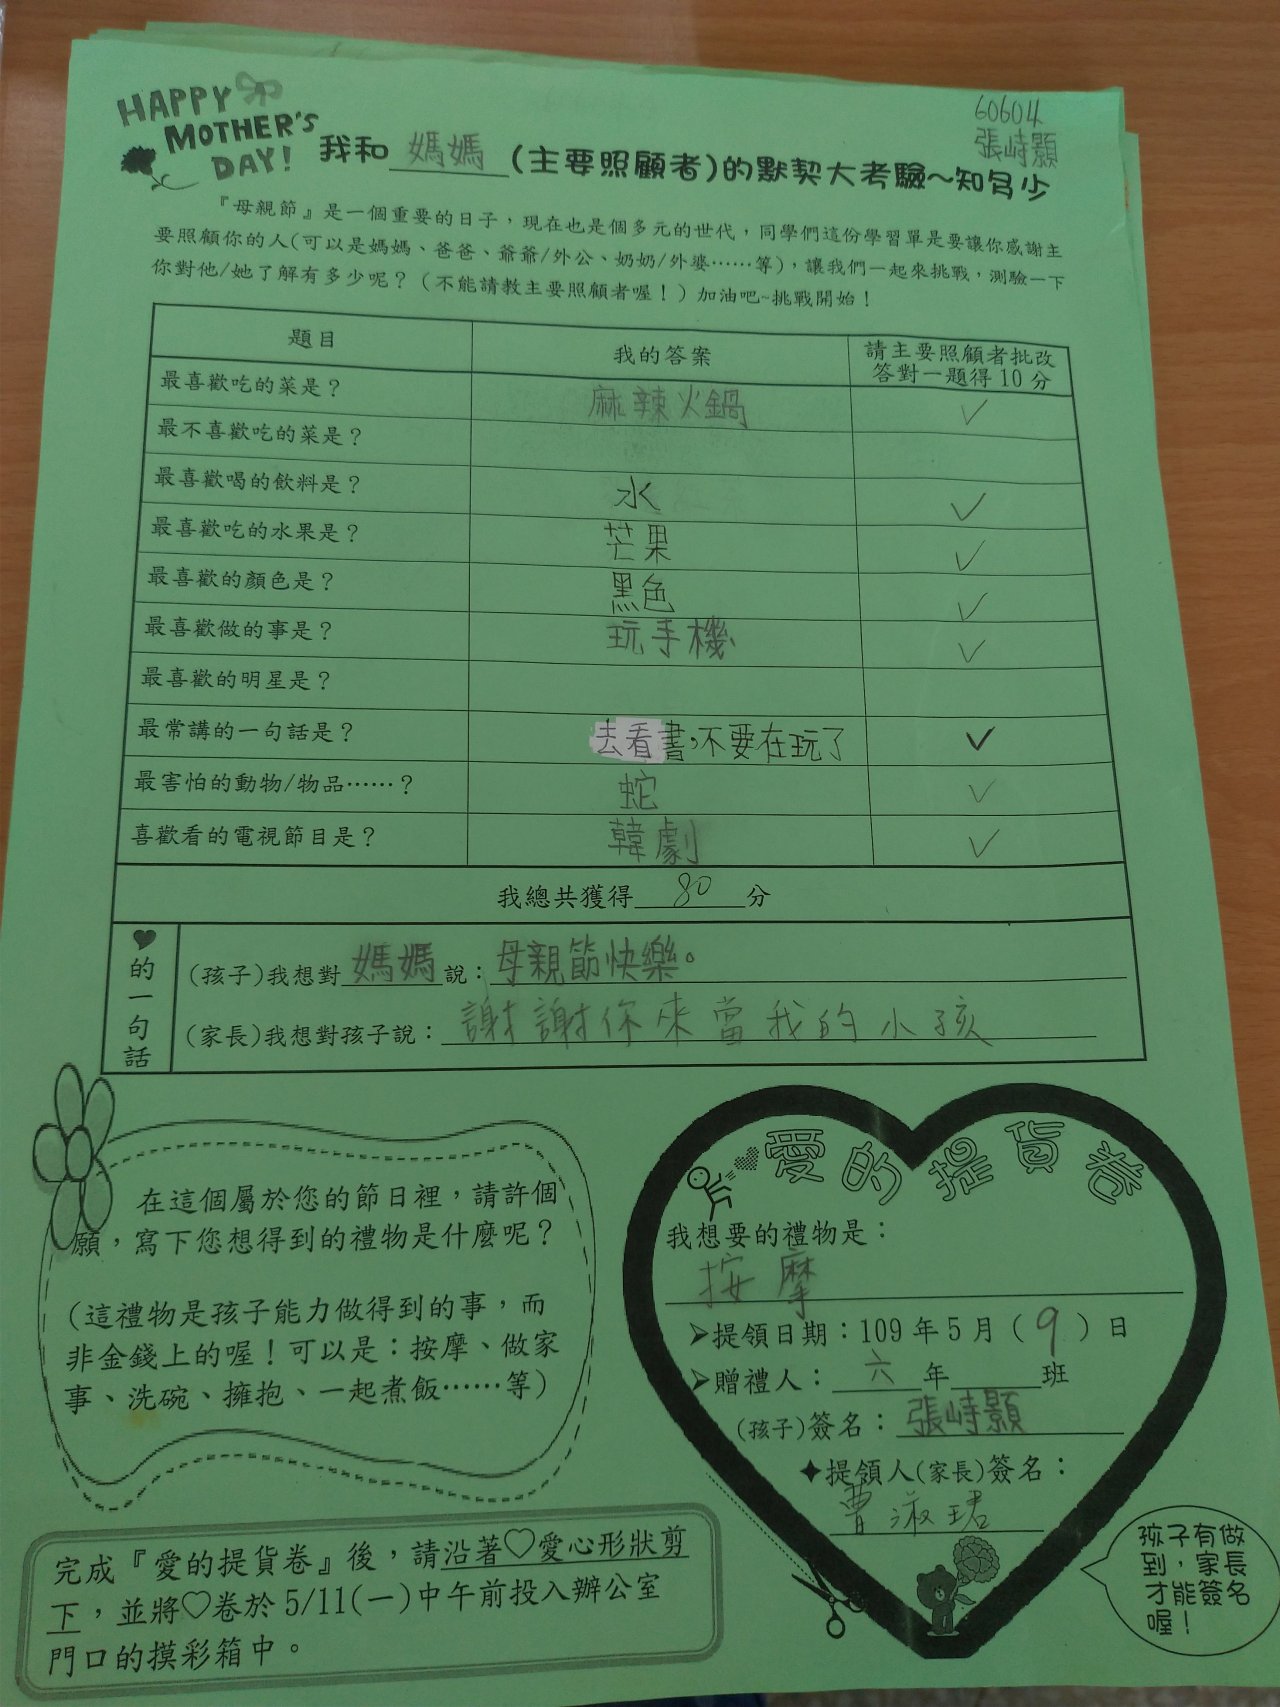 HAPPY
MOTHER'S
DAY!
60604
張峙顥
我和 媽媽 (主要照顧者)的默契大考驗~知多少
『母親節』是一個重要的日子，現在也是個多元的世代，同學們這份學習單是要讓你感謝主
要照顧你的人(可以是媽媽、爸爸、爺爺/外公、奶奶/外婆……等)，讓我們一起來挑戰，測驗一下
你對他/她了解有多少呢？（不能請教主要照顧者喔！）加油吧~挑戰開始！
題目 我的答案 請主要照顧者批改
答對一題得10分
最喜歡吃的菜是？ 麻辣火鍋 ✓
最不喜歡吃的菜是？
最喜歡喝的飲料是？ 水 ✓
最喜歡吃的水果是？ 芒果 ✓
最喜歡的顏色是？ 黑色 ✓
最喜歡做的事是？ 玩手機 ✓
最喜歡的明星是？
最常講的一句話是？ 去看書,不要在玩了 ✓
最害怕的動物/物品……？ 蛇 ✓
喜歡看的電視節目是？ 韓劇 ✓
我總共獲得 80 分
♥的一句話
(孩子)我想對 媽媽 說：母親節快樂。
(家長)我想對孩子說：謝謝你來當我的小孩
在這個屬於您的節日裡，請許個
願，寫下您想得到的禮物是什麼呢？
(這禮物是孩子能力做得到的事，而
非金錢上的喔！可以是：按摩、做家
事、洗碗、擁抱、一起煮飯……等)
愛的提貨卷
我想要的禮物是：
按摩
➢提領日期：109年5月（9）日
➢贈禮人：六年 班
(孩子)簽名：張峙顥
✦提領人(家長)簽名：
曹淑珺
孩子有做
到，家長
才能簽名
喔！
完成『愛的提貨卷』後，請沿著♡愛心形狀剪
下，並將♡卷於5/11(一)中午前投入辦公室
門口的摸彩箱中。